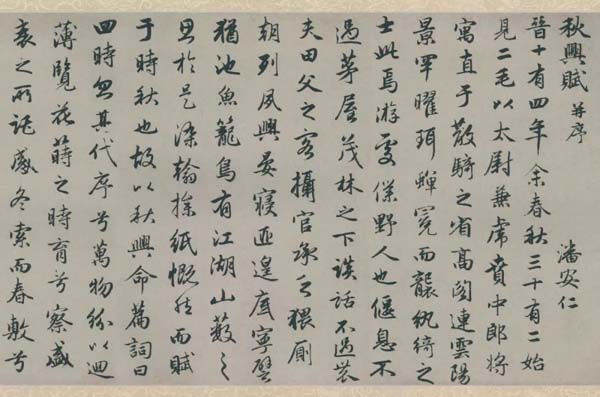 秋興賦 并序
潘安仁
晉十有四年余春秋三十有二始
見二毛以太尉兼虎賁中郎將
寓直于散騎之省高閣連雲陽
景罕曜珥蟬冕而襲紈綺之
士此焉游處僕野人也偃息不
過茅屋茂林之下談話不過農
夫田父之客攝官承乏猥廁
朝列夙興晏寢匪遑底寧譬
猶池魚籠鳥有江湖山藪之
思於是染翰操紙慨然而賦
于時秋也故以秋興命篇詞曰
四時忽其代序兮萬物紛以迴
薄覽花蒔之時育兮察盛
衰之所託感冬索而春敷兮